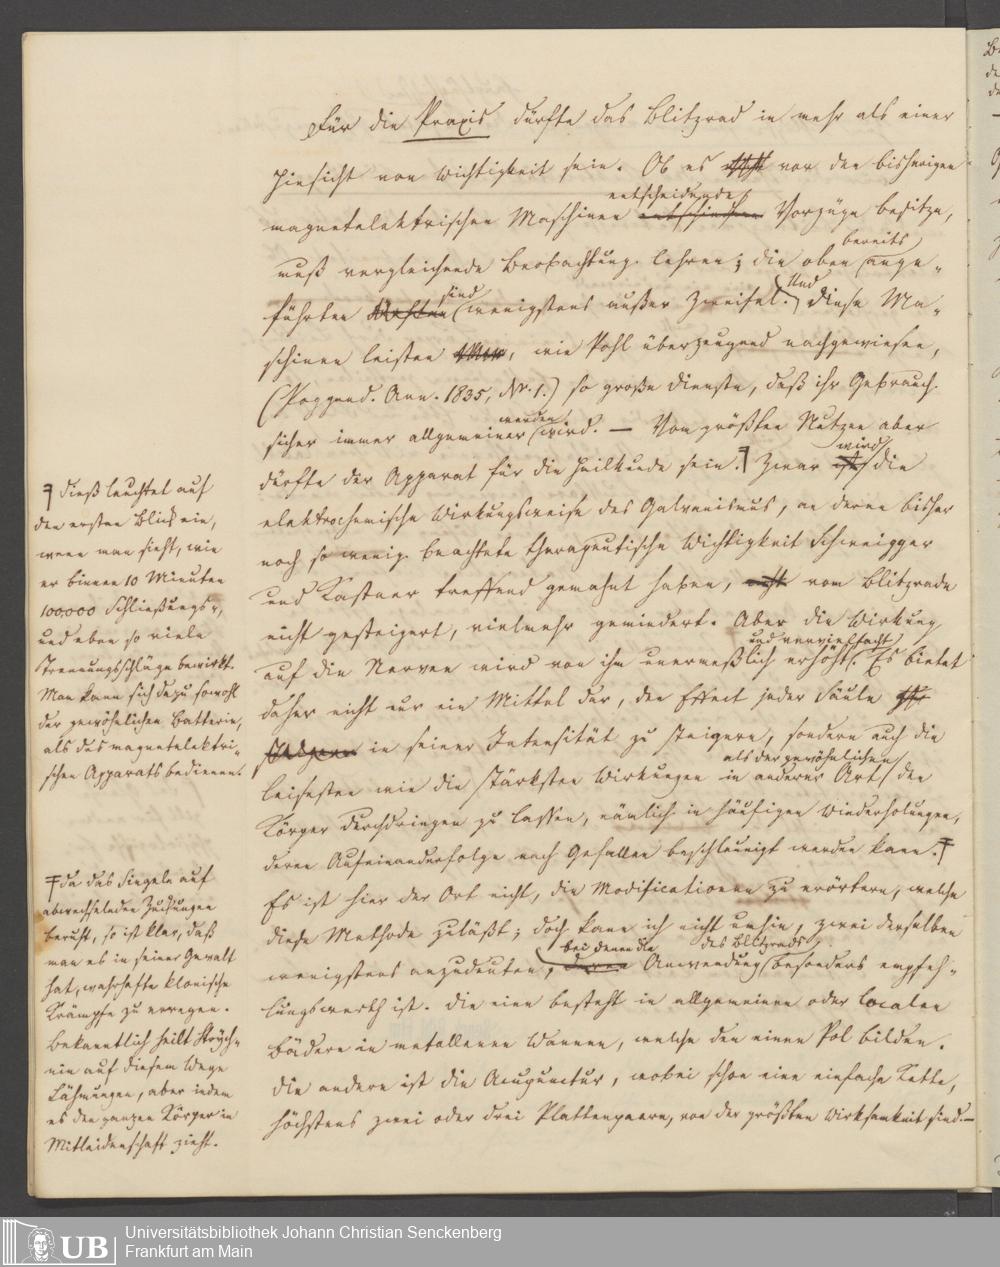 Für die Praxis dürfte das Blitzrad in mehr als einer
Hinsicht von Wichtigkeit sein. Ob es vor den bisherigen
magnetelektrischen Maschinen entscheidende Vorzüge besitze,
muß vergleichende Beobachtung lehren; die oben bereits ange-
führten sind wenigstens außer Zweifel. Und diese Ma-
schinen leisten, wie Pohl überzeugend nachgewiesen,
(Poggend. Ann. 1835, Nr. 1.) so große Dienste, daß ihr Gebrauch
sicher immer allgemeiner werden wird. — Von größtem Nutzen aber
dürfte der Apparat für die Heilkunde sein. Zwar wird die
elektrochemische Wirkungsweise des Galvanismus, an deren bisher
noch so wenig beachtete therapeutische Wichtigkeit Schweigger
und Kastner treffend gemahnt haben, vom Blitzrade
nicht gesteigert, vielmehr gemindert. Aber die Wirkung
auf die Nerven wird von ihm unermeßlich erhöht und vervielfacht. Es bietet
daher nicht nur ein Mittel dar, den Effect jeder Säule
in seiner Intensität zu steigern, sondern auch die
leisesten wie die stärksten Wirkungen in anderer Art als der gewöhnlichen den
Körper durchdringen zu lassen, nämlich in häufigen Wiederholungen,
deren Aufeinanderfolge nach Gefallen beschleunigt werden kann.
Es ist hier der Ort nicht, die Modificationen zu erörtern, welche
diese Methode zuläßt; doch kann ich nicht umhin, zwei derselben
wenigstens anzudeuten, bei denen die Anwendung des Blitzrads besonders empfeh-
lungswerth ist. Die eine besteht in allgemeinen oder localen
Bädern in metallenen Wannen, welche den einen Pol bilden.
Die andere ist die Acupunctur, wobei schon eine einfache Kette,
höchstens zwei oder drei Plattenpaare, von der größten Wirksamkeit sind.—
Dieß leuchtet auf
den ersten Blick ein,
wenn man sieht, wie
er binnen 10 Minuten
100,000 Schließungs-,
und eben so viele
Trennungsschläge bewirkt.
Man kann sich dazu sowohl
der gewöhnlichen Batterie,
als des magnetelektri-
schen Apparats bedienen.
Da das Singeln auf
abwechselnden Zuckungen
beruht, so ist klar, daß
man es in seiner Gewalt
hat, wahrhafte klonische
Krämpfe zu erregen.
Bekanntlich heilt Strych-
nin auf diesem Wege
Lähmungen, aber indem
es den ganzen Körper in
Mitleidenschaft zieht.
UB
Universitätsbibliothek Johann Christian Senckenberg
Frankfurt am Main